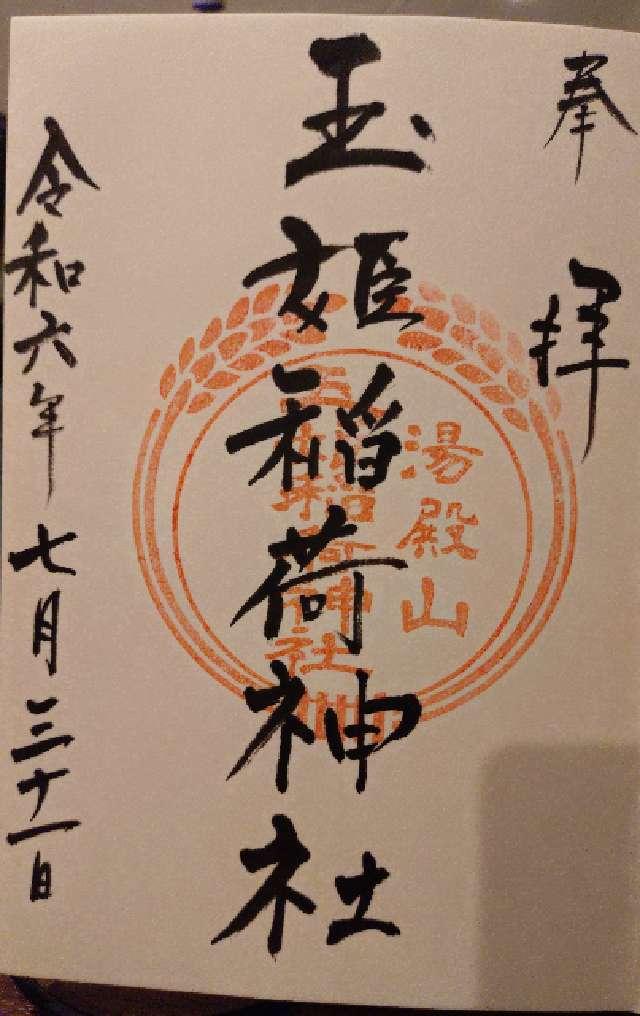 奉拝
湯殿山
玉姫稲荷神社
玉姫稲荷神社
令和六年七月三十一日